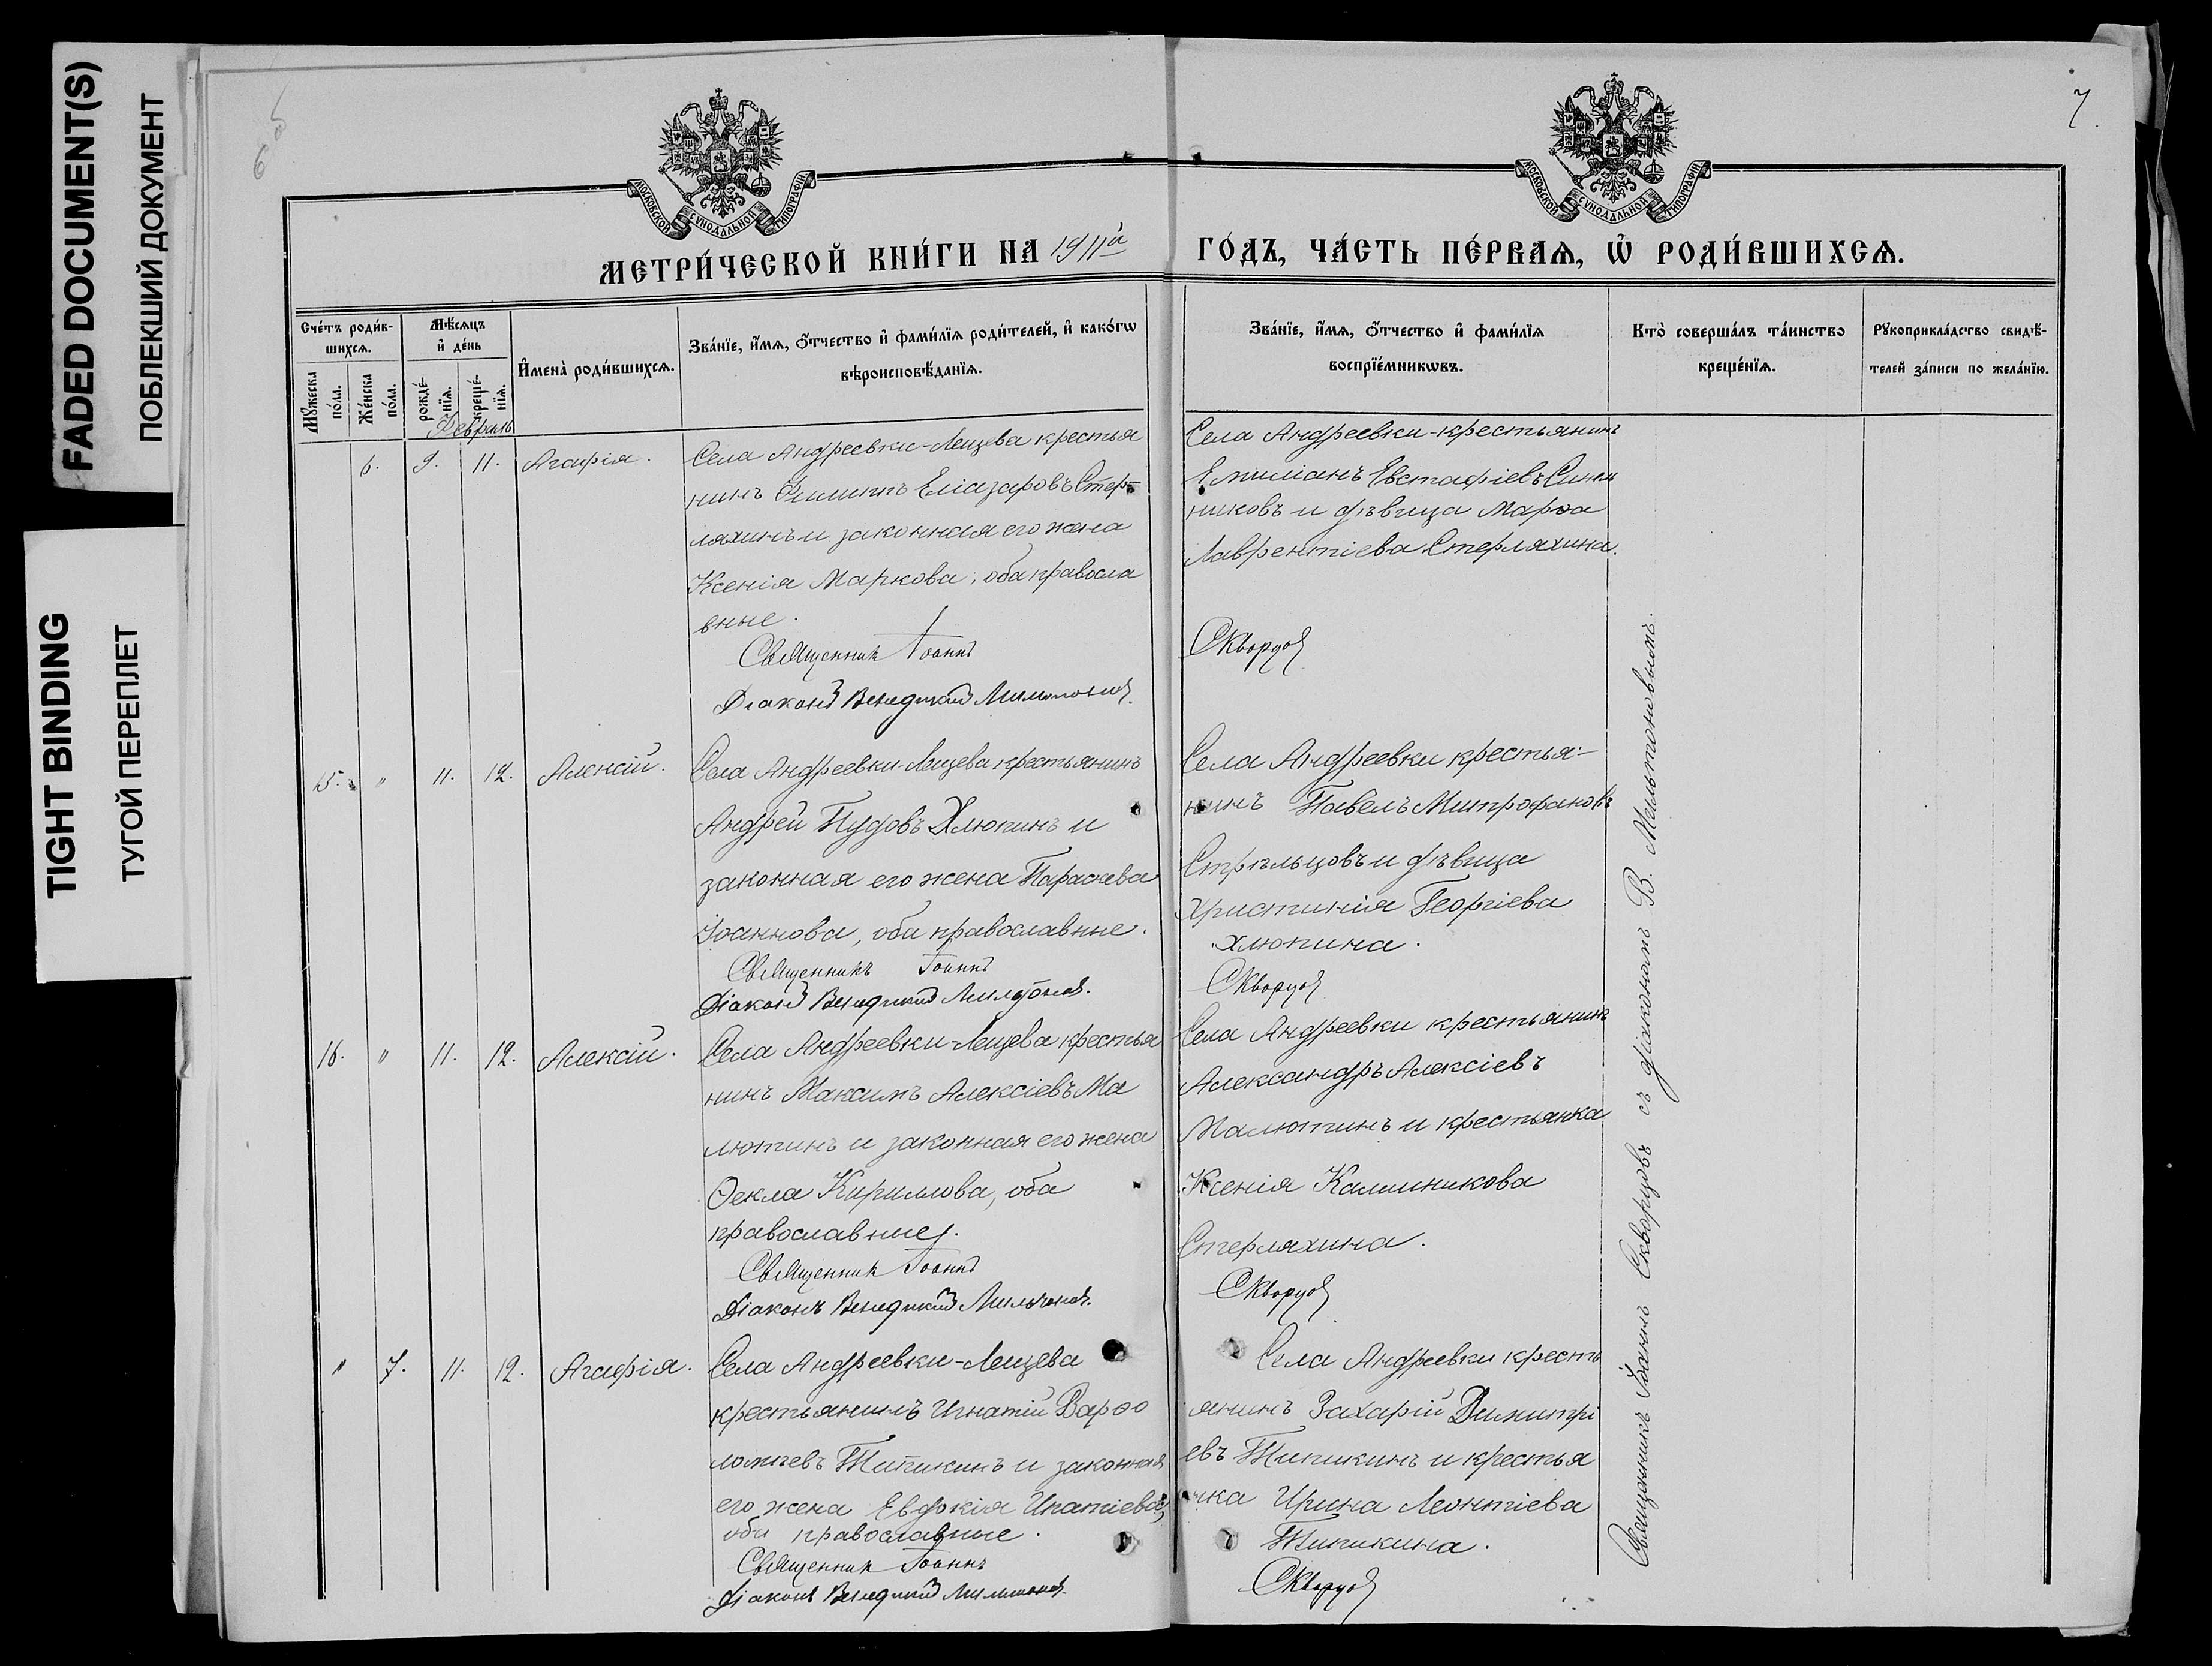 FADED DOCUMENT(S)
ПОБЛЕКШИЙ ДОКУМЕНТ
TIGHT BINDING
ТУГОЙ ПЕРЕПЛЕТ
7.
МОСКОВСКОЙ СѴНОДАЛЬНОЙ ТИПОГРАФІИ
МОСКОВСКОЙ СѴНОДАЛЬНОЙ ТИПОГРАФІИ
МЕТРИ́ЧЕСКОЙ КНИ́ГИ НА 1911й ГО́ДЪ, ЧА́СТЬ ПЕ́РВАѦ, Ѽ РОДИ́ВШИХСѦ.
Сче́тъ роди́в-
шихсѧ.
Мꙋ́жеска по́ла.
Же́нска по́ла.
Мѣ́сѧцъ и҆ де́нь
рожде́-
нїѧ.
креще́-
нїѧ.
И҆мена̀ роди́вшихсѧ.
Зва́нїе, и҆́мѧ, ѻ҆́тчество и҆ фами́лїѧ роди́телей, и҆ како́гѡ
вѣроисповѣ́данїѧ.
Зва́нїе, и҆́мѧ, ѻ҆́тчество и҆ фами́лїѧ
воспрїе́мникѡвъ.
Кто̀ соверша́лъ та́инство
креще́нїѧ.
Рꙋкоприкла́дство свидѣ́-
телей за́писи по жела́нїю.
Февраль
6. 9. 11. Агафія.
Села Андреевки-Лещева крестья
нинъ Филиппъ Еліазаровъ Стер-
ляхинъ и законная его жена
Ксенія Маркова, оба правосла
вные.
Священникъ Іоаннъ
Діаконъ Венедиктъ Мильтоновъ.
Села Андреевки-крестьянинъ
Емиліанъ Евстафіевъ
никовъ и дѣвица Марѳа
Лаврентіева Стерляхина.
Скворцовъ
15. " 11. 12. Алексій.
Села Андреевки-Лещева крестьянинъ
Андрей Пудовъ Хлюпинъ и
законная его жена Параскева
Іоаннова, оба православные.
Священникъ Іоаннъ
Діаконъ Венедиктъ Мильтоновъ.
Села Андреевки крестья-
нинъ Павелъ Митрофановъ
Стрѣльцовъ и дѣвица
Христинія Георгіева
Хлюпина.
Скворцовъ
16. " 11. 12. Алексій.
Села Андреевки-Лещева крестья
нинъ Максимъ Алексіевъ Ма
лютинъ и законная его жена
Ѳекла Кириллова, оба
православные.
Священникъ Іоаннъ
Діаконъ Венедиктъ Мильтоновъ.
Села Андреевки крестьянинъ
Александръ Алексіевъ
Малютинъ и крестьянка
Ксенія Каллиникова
Стерляхина.
Скворцовъ
" 7. 11. 12. Агафія.
Села Андреевки-Лещева
крестьянинъ Игнатій Варѳо
ломѣевъ Типикинъ и законная
его жена Евдокія Ипатіева,
оба православные.
Священникъ Іоаннъ
Діаконъ Венедиктъ Мильтоновъ.
Села Андреевки кресть
янинъ Захарій Димитрі
евъ Типикинъ и крестья
нка Ирина Леонтіева
Типикина.
Скворцовъ
Священникъ Іоаннъ Скворцовъ съ діакономъ В. Мильтоновымъ.